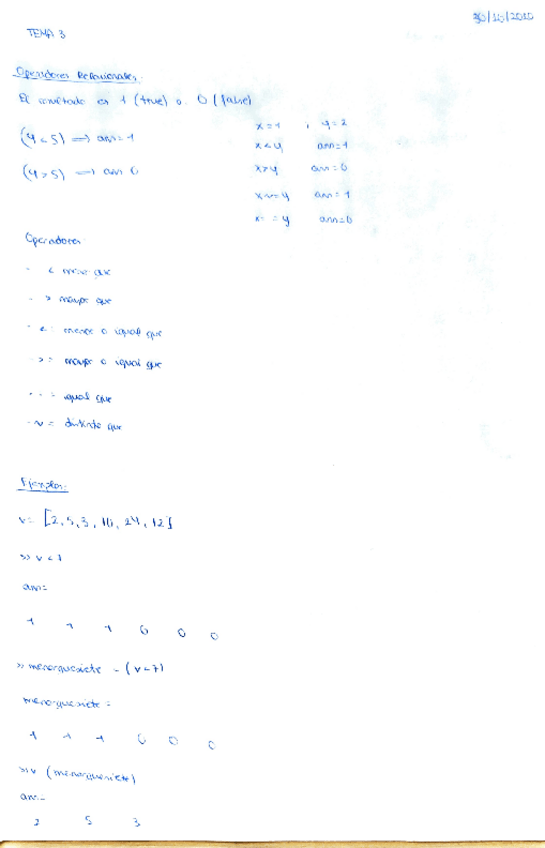 30/10/2020
TEMA 3
Operadores Relacionales:
El resultado es 1 (true) o 0 (false)
(4<5) => ans=1
(4>5) => ans 0
x=1 , y=2
x<y ans=1
x>y ans=0
x~=y ans=1
x==y ans=0
Operadores
- < menor que
- > mayor que
- <= menor o igual que
- >= mayor o igual que
- == igual que
- ~= distinto que
Ejemplos:
v= [2,5,3,10,24,12]
>> v<7
ans=
1 1 1 0 0 0
>> menorquesiete = (v<7)
menorquesiete =
1 1 1 0 0 0
>> v (menorquesiete)
ans=
2 5 3